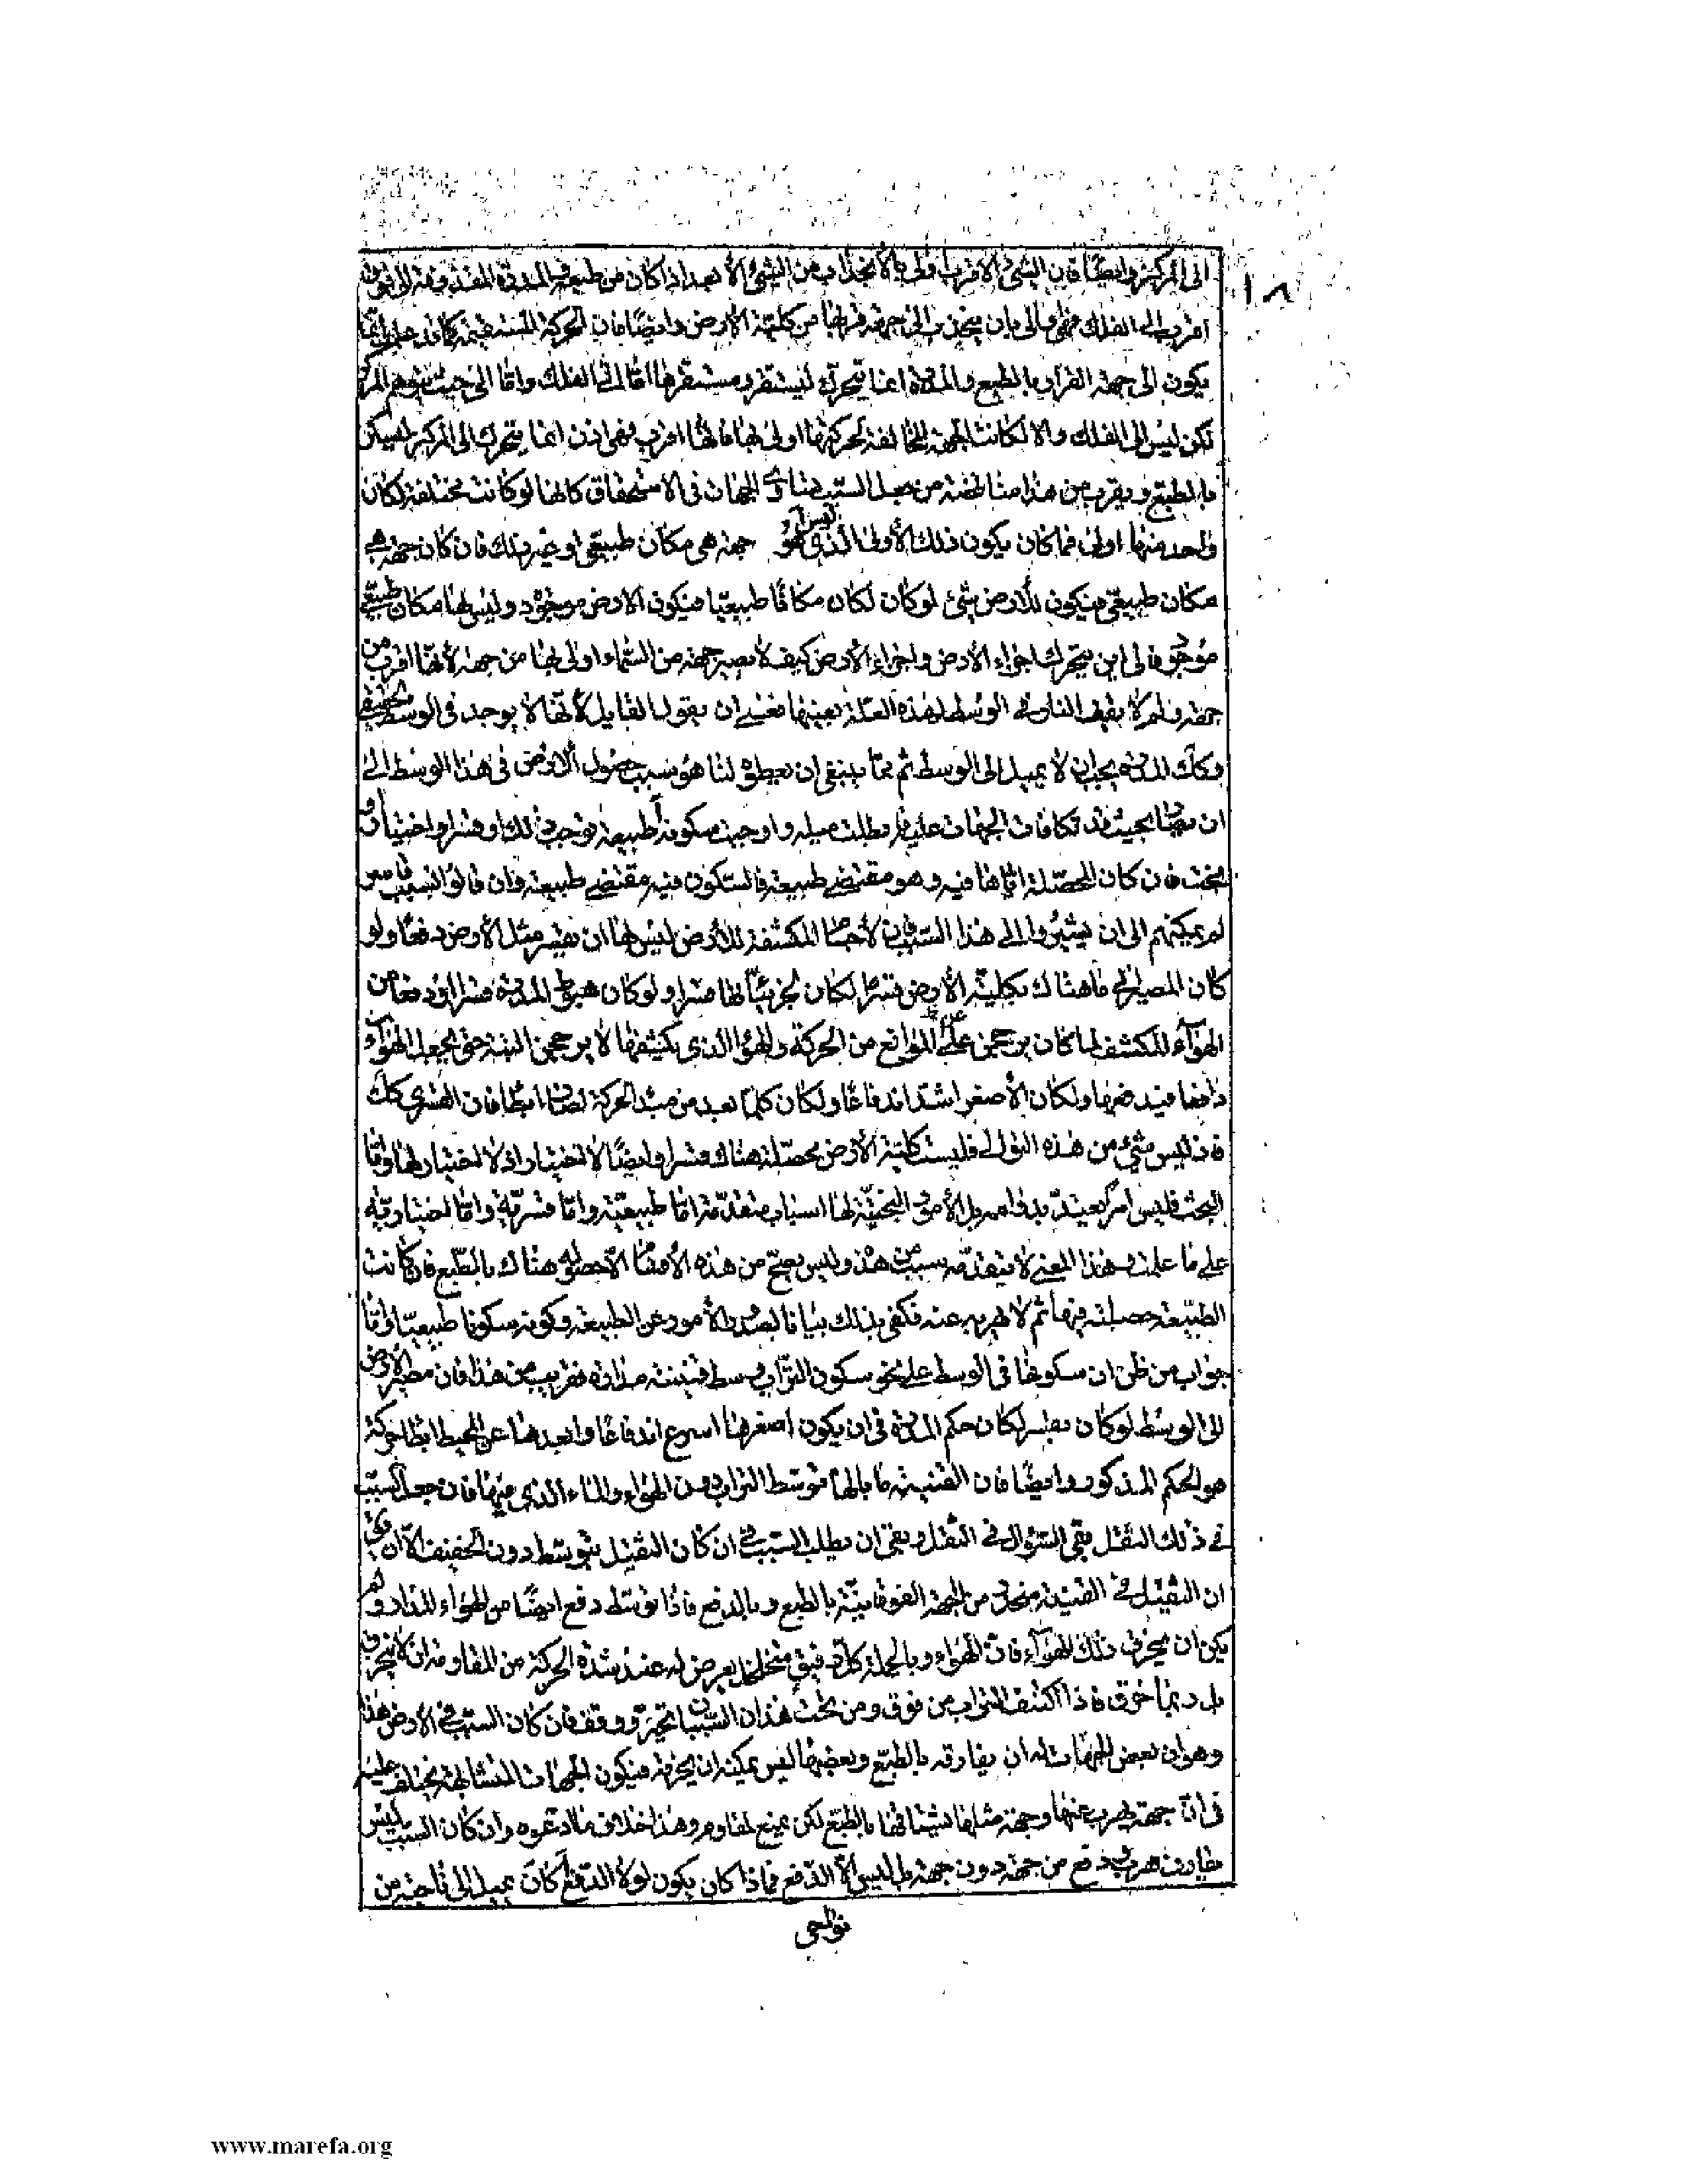 الى المركز وايضا فان الشئ الاقرب اولى بالانجذاب من الشئ الابعد اذا كان من طبيعته المدرة المقذوفة الى فوق
اقرب الى الفلك فهى اولى بان ينجذب الى جهة قربها من كلية الارض وايضا فان الحركة المستقيمة كما قد علمت انما
يكون الى جهة القرار بالطبع والمدرة انما يتحرك ليستقر ومستقرها اما الى الفلك واما الى حيث يتوهم المركز
لكن ليس الى الفلك والا لكانت الجهة المخالفة لحركتها اولى بها فانها اقرب فهى اذن انما يتحرك الى المركز ليسكن
بالطبع ويقرب من هذا مناقضة من جعل السبب تساوى الجهات فى الاستحقاق كانها لو كانت مختلفة لكان
واحد منها اولى فما كان يكون ذلك الأولى الذى ليس هو جهة هى مكان طبيعى او غير ذلك فان كان جهة هى
مكان طبيعى فيكون للأرض شئ لو كان لكان مكانا طبيعيا فيكون الارض موجود وليس لها مكان طبيعى
موجود فالى اين يتحرك اجزاء الارض واجزاء الأرض كيف لا يصير جهة من السماء اولى بها من جهة لأنها اقرب من
جهة ولم لا يقف النار فى الوسط لهذه العلة بعينها فعسى ان يقول القايل لأنها لا يوجد فى الوسط الحقيقى
وكك المدرة يجب ان لا يميل الى الوسط ثم مما ينبغى ان يعطوه لنا هو سبب حصول الارض فى هذا الوسط الى
ان صارت بحيث قد تكافات الجهات عليه فابطلت ميله واوجبت سكونه أطبيعة يوجب ذلك او قسر او اختيار او
بخت فان كان المحصلة اياها فيه وهو مقتضى طبيعته فالسكون فيه مقتضى طبيعته وان قالوا السبب قاسر
لم يمكنهم الى ان يشيروا الى هذا السبب فان الأجسام المكتنفة للأرض ليس لها ان يقسر مثل الأرض دفعا ولو
كان المصير الى ما هناك بكلية الأرض قسرا لكان لجزئياتها قسرا ولو كان هبوط المدرة قسرا او دفعا من
الهواء المكتنف لما كان يرجحن على الموانع من الحركة والهواء الذى يكتنفها لا يرجحن البتة حتى يجعل الهواء
دافعا فيدفعها ولكان الأصغر اشد اندفاعا ولكان كلما بعد من مبدء الحركة لصار ابطأ فان القسرى كك
فاذ ليس شئ من هذه التوالى فليست كلية الأرض محصلة هناك قسرا وايضا لا اختيارا اذ لا اختيار لها واما
البخت فليس امر يعتد بدوامه بل الأمور البختية لها اسباب متقدمة اما طبيعية واما قسرية واما اختيارية
على ما علمت وهذا المعنى لا يتقدمه سبب من هذه وليس يصح من هذه الأقسام الا حصوله هناك بالطبع فان كانت
الطبيعة حصلته فيه ثم لا يهرب عنه فكفى بذلك بيانا لصدور الأمور عن الطبيعة وكونه سكونا طبيعيا واما
جواب من ظن ان سكونها فى الوسط على نحو سكون التراب فى وسط قنينة مدارة فقريب من هذا فان مصير الأرض
الى الوسط لو كان بقسر لكان حكم المدرة فى ان يكون اصغرها اسرع اندفاعا وابعدها عن المحيط ابطأ حركة
هو الحكم المذكور وايضا فان القنينة ما بالها توسط التراب دون الهواء والماء الذى فيها فان جعل السبب
فى ذلك الثقل بقى السؤال فى الثقل وبقى ان يطلب السبب فى ان كان الثقيل يتوسط دون الخفيف الا ان
ان الثقيل فى القنينة منحدر من الجهة الفوقانية بالطبع وبالدفع فاذا توسط دفع ايضا من الهواء المدار ولم
يكن ان يخرق ذلك الهواء فان الهواء وبالجملة كل رقيق متخلخل يعرض له عند شدة الحركة من المقاومة ان لا ينخرق
بل ربما خرق فاذا اكتنف التراب من فوق ومن تحت هذان السببان تحير ووقف فان كان السبب فى الأرض هذا
وهو ان بعض الجهات له ان يفارقه بالطبع وبعضها ليس يمكنه ان يخرقه فيكون الجهات المتشابهة يختلف عليه
فى ان جهة يهرب عنها وجهة مثلها يشتاقها بالطبع لكن يمنع لمقاوم وهذا خلاف ما ادعوه وان كان السبب ليس
دفع من جهة دون جهة بل ليس الا الدفع فماذا كان يكون لولا الدفع أكان يميل الى ناحية من
نواحى
١٠٨
www.marefa.org